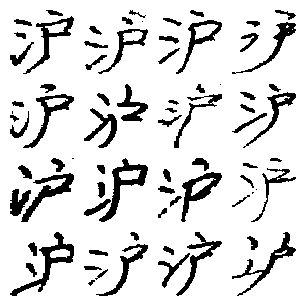 沪沪沪沪
沪沪沪沪
沪沪沪沪
沪沪沪沪